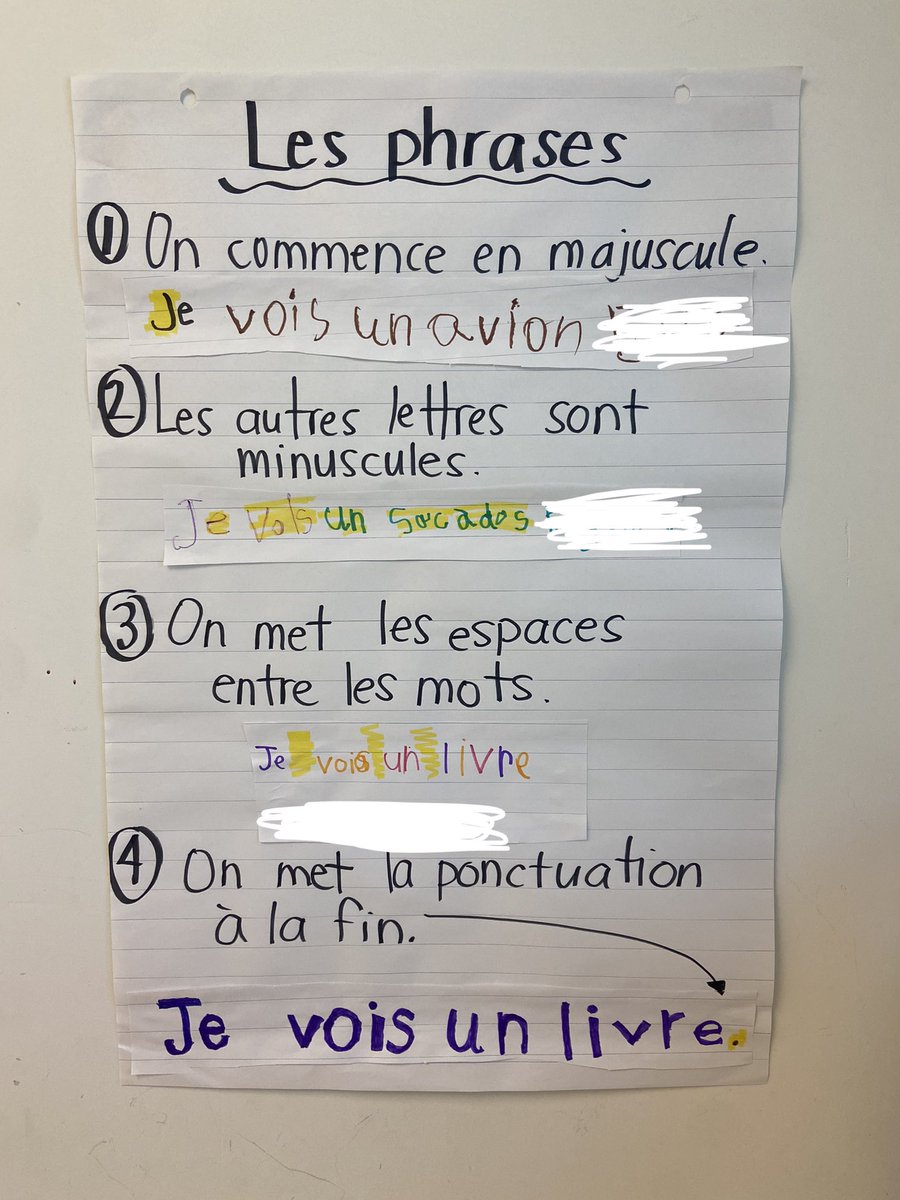 Les phrases
① On commence en majuscule.
Je vois un avion
② Les autres lettres sont
minuscules.
Je vois un sacados
③ On met les espaces
entre les mots.
Je vois un livre
④ On met la ponctuation
à la fin.
Je vois un livre.